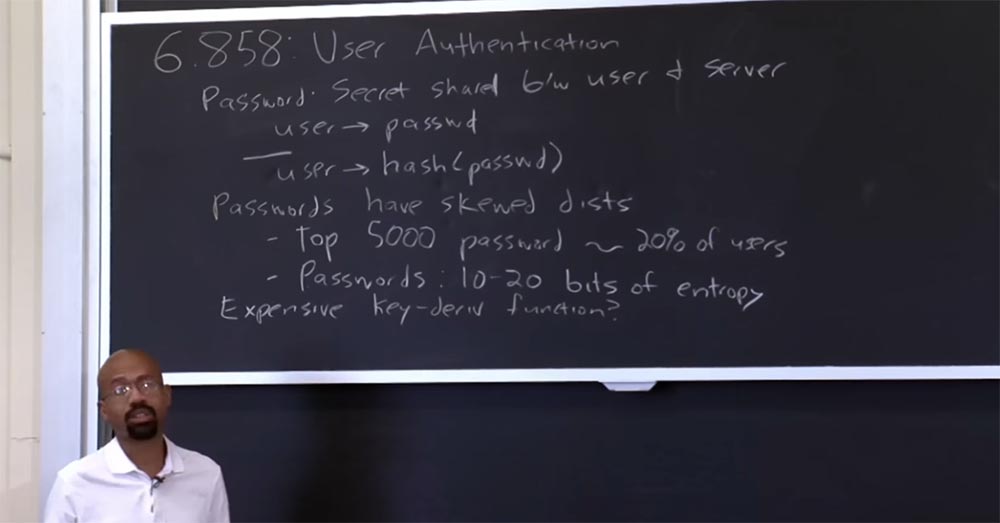 6.858: User Authentication
Password: Secret shared b/w user & server
user → passwd
user → hash(passwd)
Passwords have skewed dists
- Top 5000 password ~ 20% of users
- Passwords: 10-20 bits of entropy
Expensive key-deriv function?